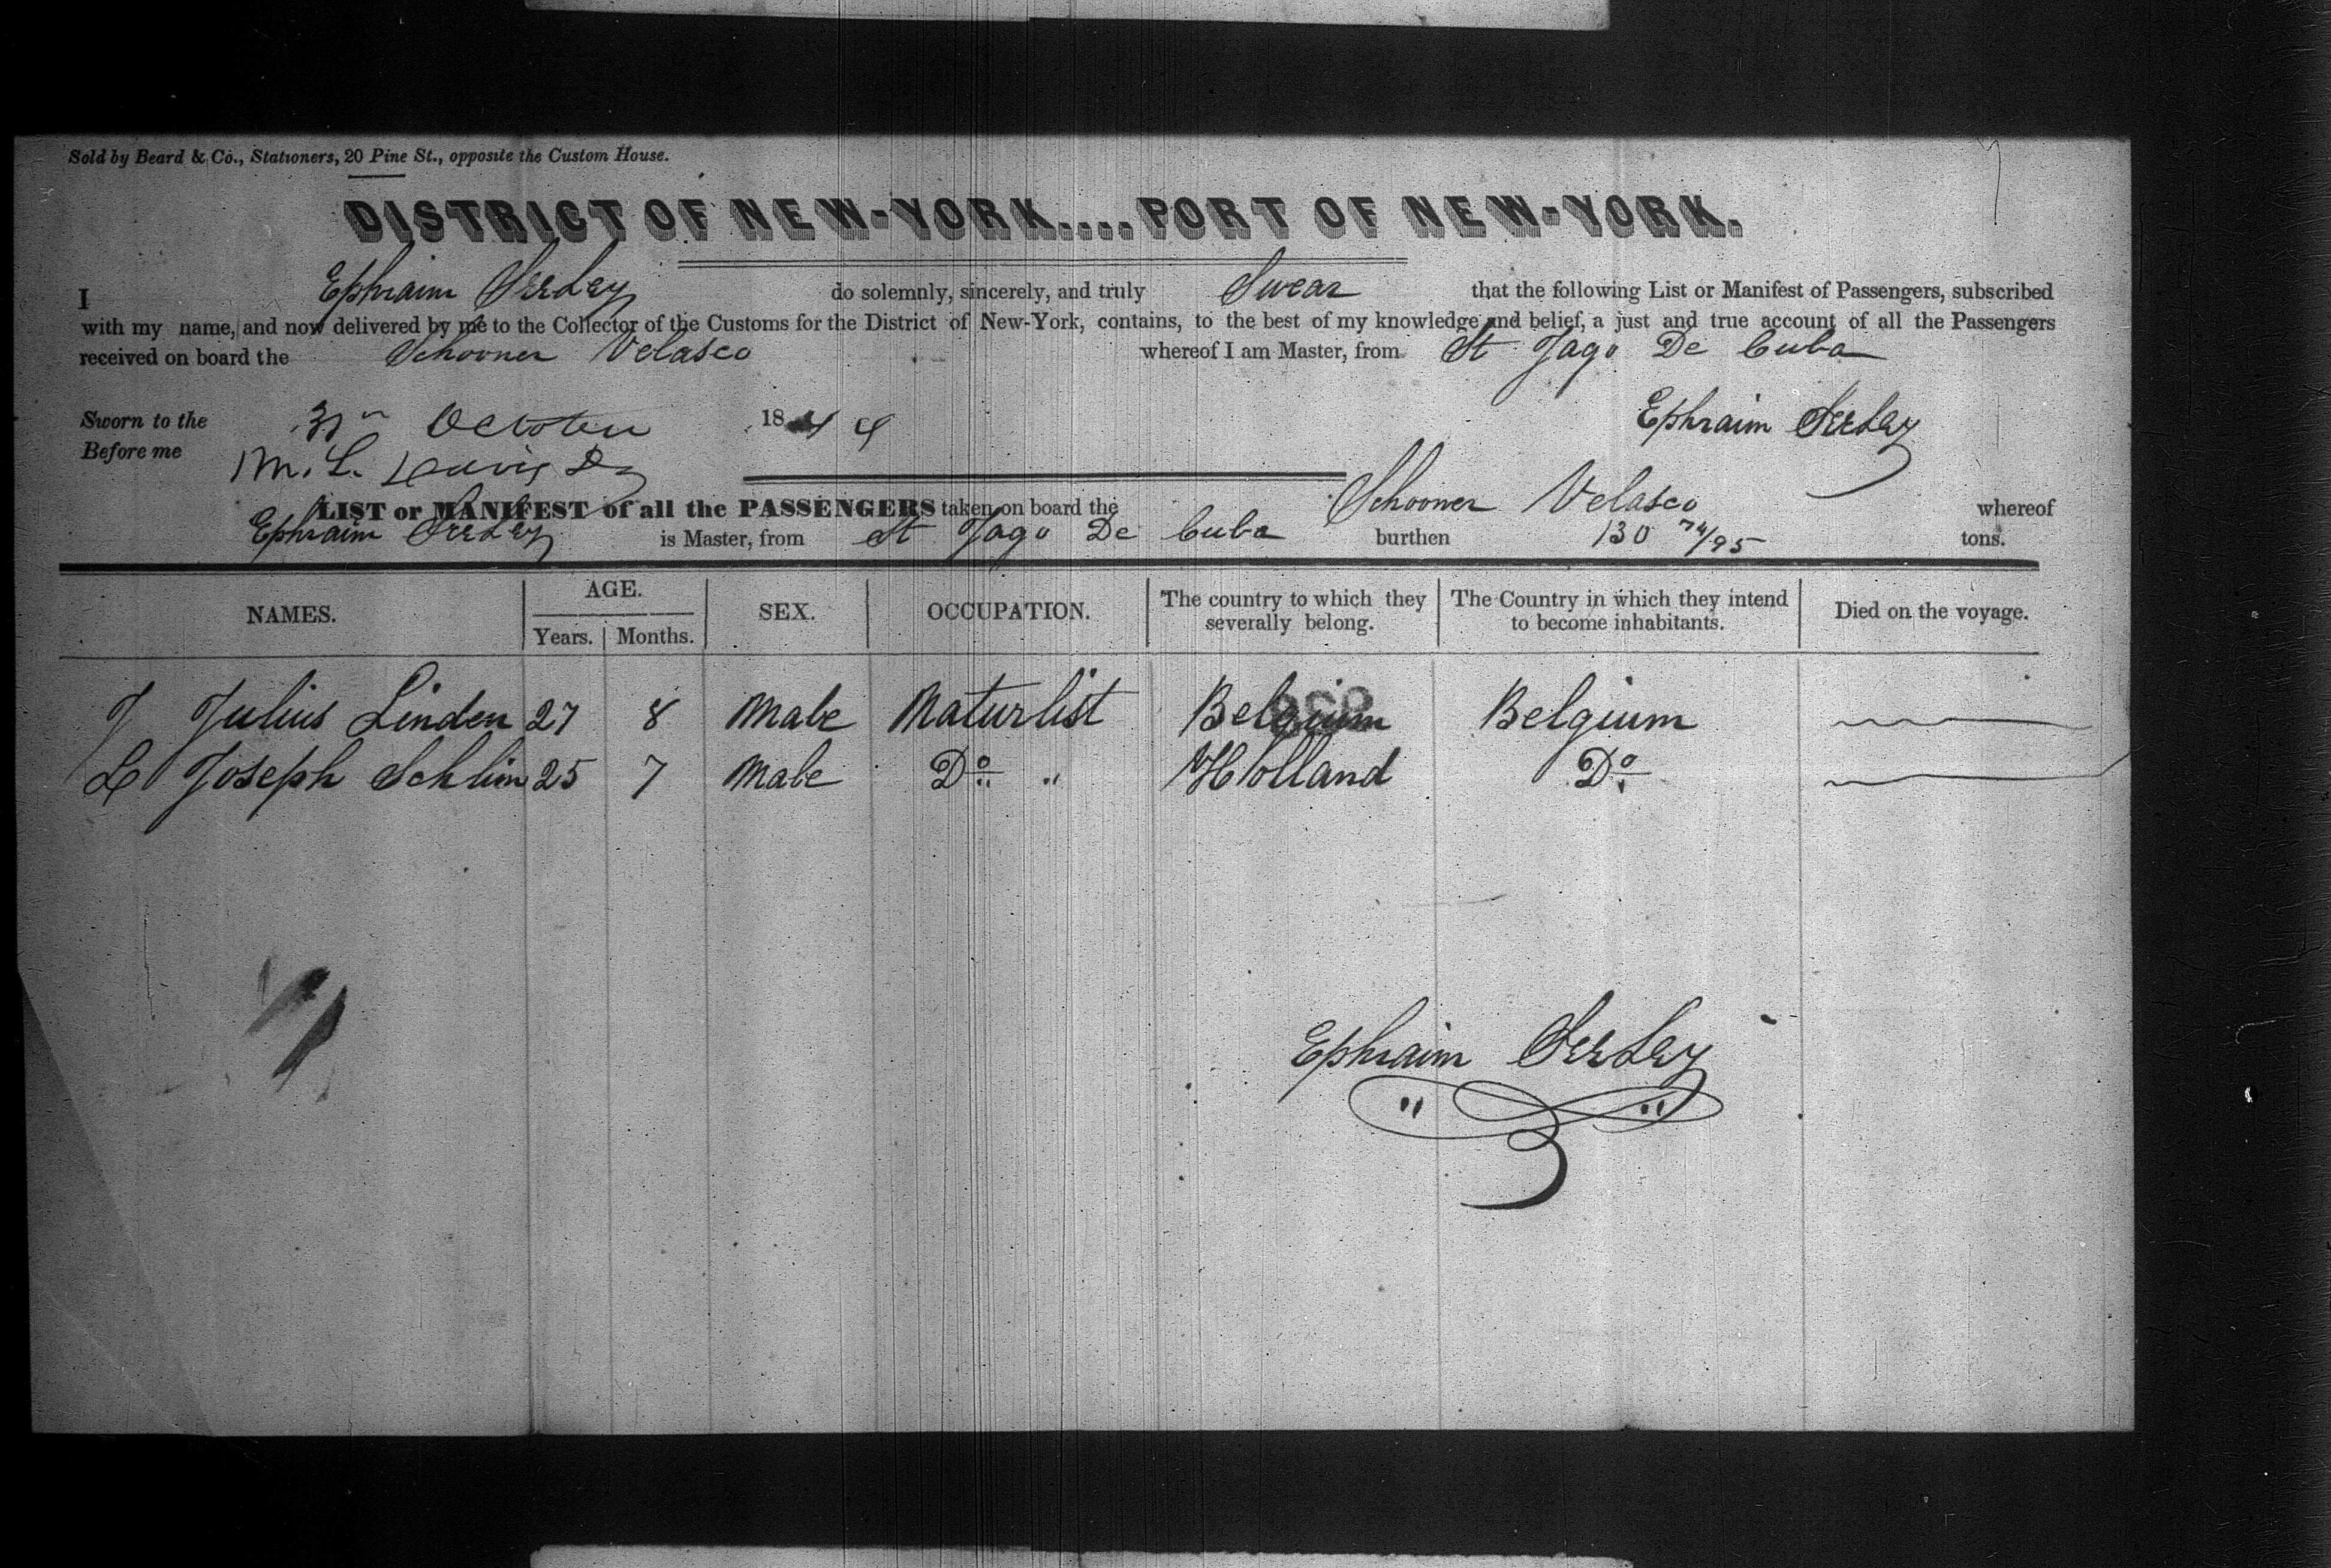 Sold by Beard & Co., Stationers, 20 Pine St., opposite the Custom House.
DISTRICT OF NEW-YORK....PORT OF NEW-YORK.
I Ephraim do solemnly, sincerely, and truly Swear that the following List or Manifest of Passengers, subscribed
with my name, and now delivered by me to the Collector of the Customs for the District of New-York, contains, to the best of my knowledge and belief, a just and true account of all the Passengers
received on board the Schooner Velasco whereof I am Master, from St Jago De Cuba
Sworn to the October 1844 Ephraim
Before me M. L. Davis
LIST or MANIFEST of all the PASSENGERS taken on board the Schooner Velasco whereof
Ephraim is Master, from St Jago De Cuba burthen 130 74/95 tons.
NAMES. AGE. SEX. OCCUPATION. The country to which they severally belong. The Country in which they intend to become inhabitants. Died on the voyage.
Years. Months.
J Julius Linden 27 8 Male Naturlist Belgium Belgium
L Joseph Schlim 25 7 Male Do " Holland Do
Ephraim